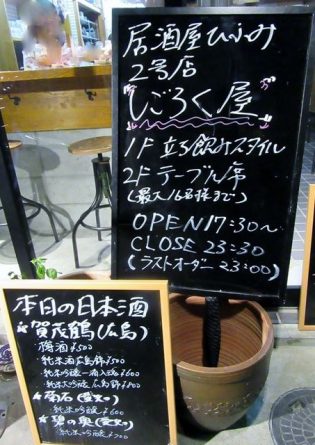 居酒屋ひふみ
2号店
"しごろく屋"
1F 立ち飲みスタイル
2F テーブル席
(最大16名様まで)
OPEN 17:30~
CLOSE 23:30
(ラストオーダー 23:00)
本日の日本酒
賀茂鶴(広島)
梅酒 ¥500
・純米酒広島錦 ¥500
・純米吟醸一滴入魂 ¥600
・純米大吟醸 広島錦 ¥800
・純米吟醸 ¥600
・純米大吟醸